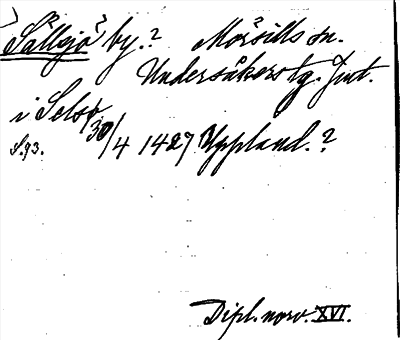 Sällsjö by.? Mörsills sn.
Undersåkers tg. Jmt.
i Selso
S. 93. 30/4 1427 Uppland.?
Dipl. norv. XVI.